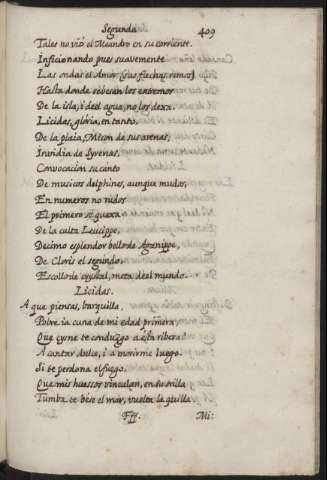 Segunda 409
Tales no vio el Meandro en su corriente.
Inficionando pues suavemente
Las ondas el Amor (sus flechas remos)
Hasta donde se besan los extremos
De la isla, i del agua, no los dexa.
Licidas, gloria, en tanto,
De la plaia, Micon de sus arenas,
Invidia de Syrenas,
Convocacion su canto
De musicos delphines, aunque mudos,
En numeros no rudos
El primero se quexa
De la culta Leucippe,
Decimo esplendor bello de Aganippe,
De Cloris el segundo,
Escollo de crystal, meta del mundo.
Licidas.
A que piensas, barquilla,
Pobre ia cuna de mi edad primera,
Que cysne te conduzgo a esta ribera?
A cantar dulce, i a morirme luego.
Si te perdona el fuego,
Que mis huessos vinculan, en su orilla
Tumba te bese el mar, vuelta la quilla.
Fff. Mi: